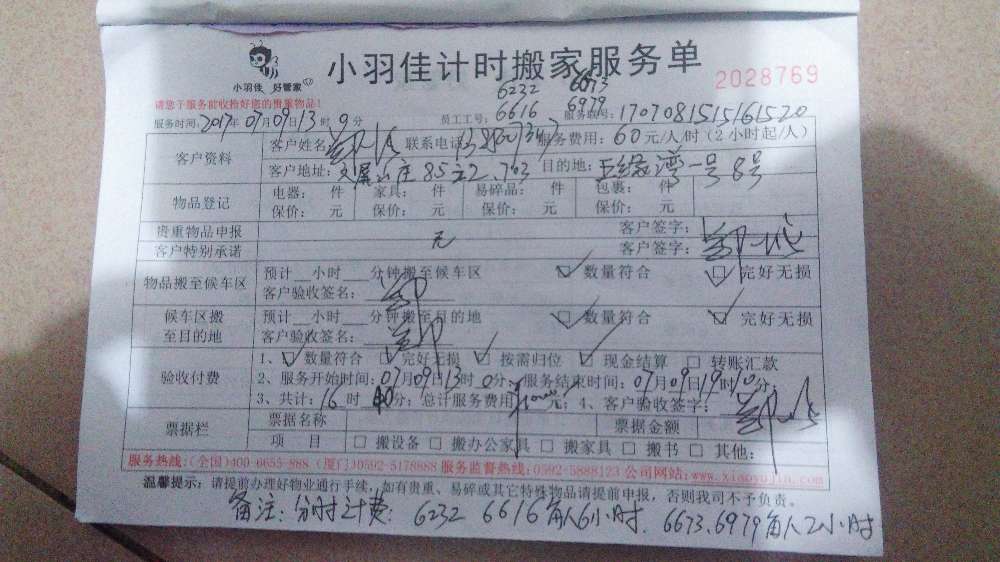 小羽佳计时搬家服务单
小羽佳 好管家
2028769
6232 6673
6616 6979
请您于服务前收拾好您的贵重物品!
服务时间:2017年07月09日13时0分 员工工号: 服务单号:1707081515161520
客户资料
客户姓名 联系电话 服务费用:60元/人/时(2小时起/人)
客户地址: 目的地: 五缘湾一号8号
物品登记
电器: 件 家具: 件 易碎品: 件 包裹: 件
保价: 元 保价: 元 保价: 元 保价: 元
贵重物品申报 客户签字:
客户特别承诺 无 客户签字:
物品搬至候车区
预计__小时__分钟搬至候车区 ☑数量符合 ☑完好无损
客户验收签名:
候车区搬至目的地
预计__小时__分钟搬至目的地 ☑数量符合 ☑完好无损
客户验收签名:
验收付费
1、☑数量符合 ☑完好无损 ☑按需归位 ☑现金结算 □转账汇款
2、服务开始时间:07月09日13时0分;服务结束时间:07月09日19时10分;
3、共计:16时 分;总计服务费用 元;4、客户验收签字:
票据栏
票据名称 票据金额
项 目 □搬设备 □搬办公家具 □搬家具 □搬书 □其他:
服务热线:(全国)400-6655-888 (厦门)0592-5178888 服务监督热线:0592-5888123 公司网站:www.xiaoyujia.com
温馨提示:请提前办理好物业通行手续,如有贵重、易碎或其它特殊物品请提前申报,否则我司不予负责。
备注:分时计费:6232 6616每人6小时. 6673.6979每人2小时